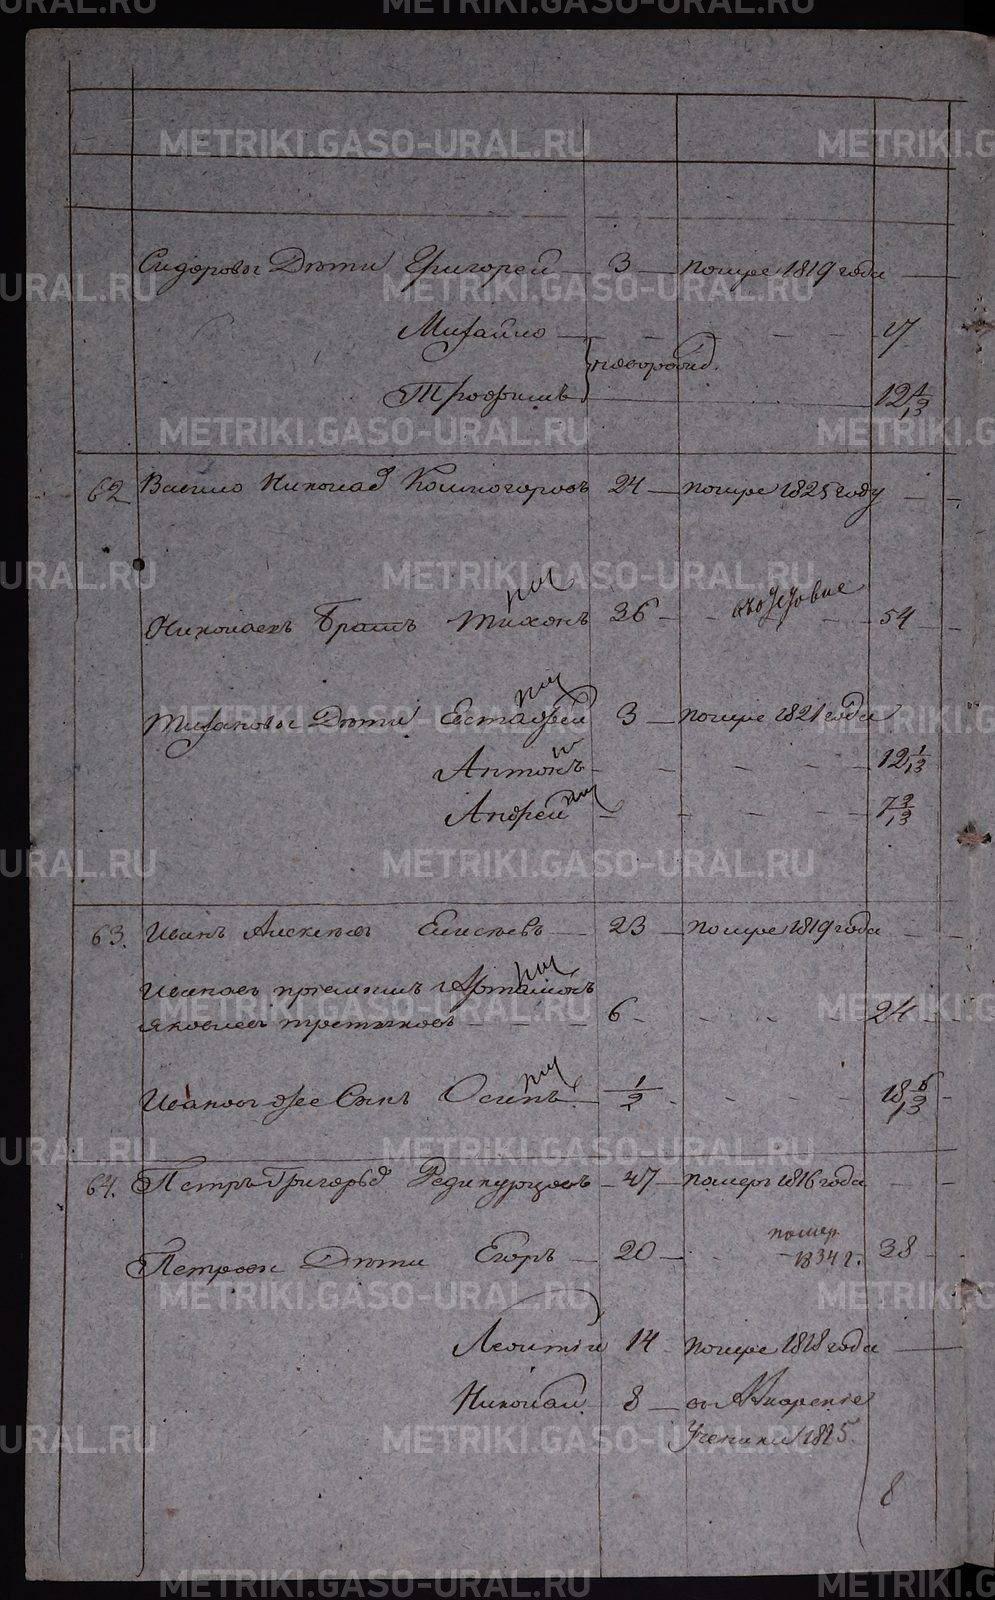 METRIKI.GASO-URAL.RU
Сидоровы Дѣти Григорей 3 помре 1819 года
Михайло 17
новорожд.
Трофимъ 12 1/12
62 Васило Николаев 24 помре 1825 году
Николаевъ Братъ Тихонъ 36 54
Тихановы Дѣти Естафей 3 помре 1821 года
Антонъ 12 1/12
Андрей 7 2/12
63. Иванъ Алексѣев Елисѣевъ 23 помре 1819 года
Ивановъ приемышъ Артамонъ
Яковлевъ 6 24
Иванов же Сынъ Осипъ 1/2 18 6/12
64. Петръ Григорьев 47 померъ 1816 года
помер
Петровы Дѣти Егоръ 20 1834 г. 38
Леонтий 14 помре 1818 года
Николай 8
Ученики 1825.
8